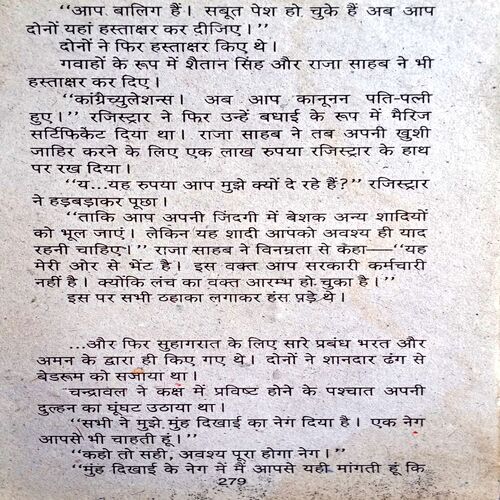 ‘‘आप बालिग हैं। सबूत पेश हो चुके हैं अब आप
दोनों यहां हस्ताक्षर कर दीजिए।’’
दोनों ने फिर हस्ताक्षर किए थे।
गवाहों के रूप में शैतान सिंह और राजा साहब ने भी
हस्ताक्षर कर दिए।
‘‘कांग्रैच्युलेशन्स। अब आप कानूनन पति-पत्नी
हुए।’’ रजिस्ट्रार ने फिर उन्हें बधाई के रूप में मैरिज
सर्टिफिकेट दिया था। राजा साहब ने तब अपनी खुशी
जाहिर करने के लिए एक लाख रुपया रजिस्ट्रार के हाथ
पर रख दिया।
‘‘य...यह रुपया आप मुझे क्यों दे रहे हैं?’’ रजिस्ट्रार
ने हड़बड़ाकर पूछा।
‘‘ताकि आप अपनी जिंदगी में बेशक अन्य शादियों
को भूल जाएं। लेकिन यह शादी आपको अवश्य ही याद
रहनी चाहिए।’’ राजा साहब ने विनम्रता से कहा—‘‘यह
मेरी ओर से भेंट है। इस वक्त आप सरकारी कर्मचारी
नहीं है। क्योंकि लंच का वक्त आरम्भ हो चुका है।’’
इस पर सभी ठहाका लगाकर हंस पड़े थे।
...और फिर सुहागरात के लिए सारे प्रबंध भरत और
अमन के द्वारा ही किए गए थे। दोनों ने शानदार ढंग से
बेडरूम को सजाया था।
चन्द्रावल ने कक्ष में प्रविष्ट होने के पश्चात अपनी
दुल्हन का घूंघट उठाया था।
‘‘सभी ने मुझे मुंह दिखाई का नेग दिया है। एक नेग
आपसे भी चाहती हूं।’’
‘‘कहो तो सही, अवश्य पूरा होगा नेग।’’
‘‘मुंह दिखाई के नेग में मैं आपसे यही मांगती हूं कि
279